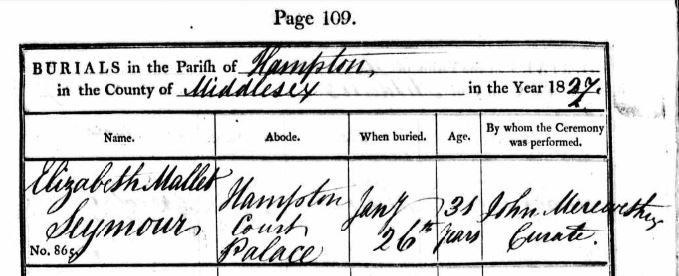 Page 109.
BURIALS in the Parish of Hampton,
in the County of Middlesex in the Year 1827.
Name. Abode. When buried. Age. By whom the Ceremony was performed.
Elizabeth Mallet Hampton Jany 31 John Merewether
Seymour Court 26th years Curate.
No. 865. Palace